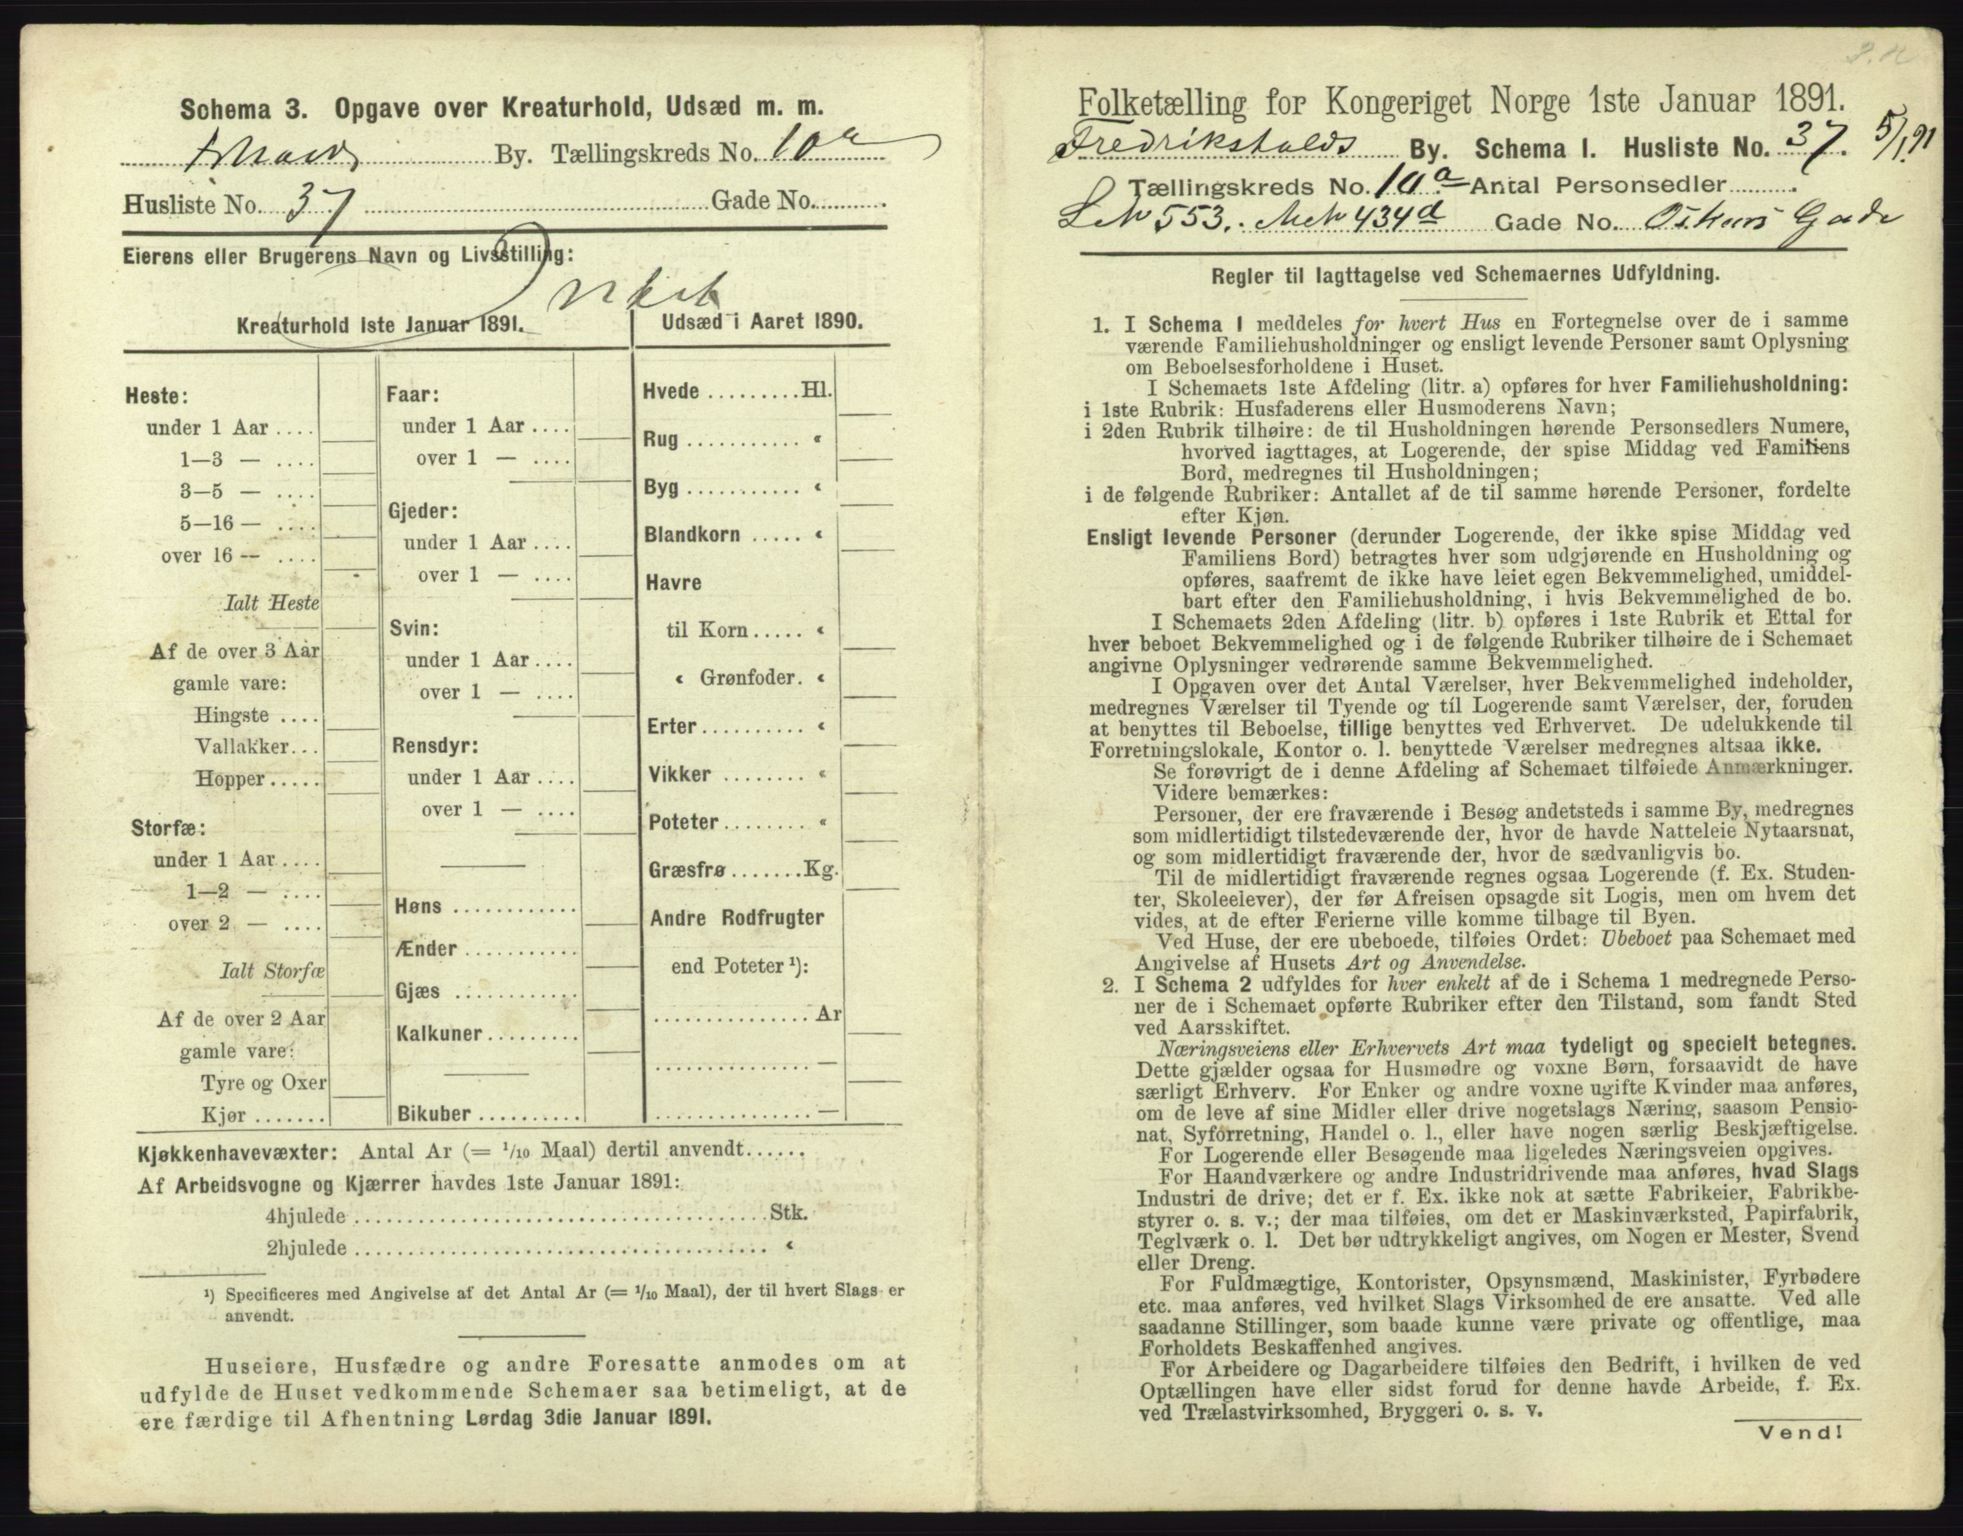 Schema 3. Opgave over Kreaturhold, Udsæd m. m.
By. Tællingskreds No. 10a
Husliste No. 37 Gade No.
Eierens eller Brugerens Navn og Livsstilling:
Intet
Kreaturhold 1ste Januar 1891.
Heste:
under 1 Aar ....
1—3 — ....
3—5 — ....
5—16 — ....
over 16 — ....
Ialt Heste
Af de over 3 Aar
gamle vare:
Hingste ....
Vallakker...
Hopper.....
Storfæ:
under 1 Aar....
1—2 — ....
over 2 — ....
Ialt Storfæ
Af de over 2 Aar
gamle vare:
Tyre og Oxer
Kjør .......
Faar:
under 1 Aar ....
over 1 — ....
Gjeder:
under 1 Aar ....
over 1 — ....
Svin:
under 1 Aar ....
over 1 — ....
Rensdyr:
under 1 Aar ....
over 1 — ....
Høns ............
Ænder ............
Gjæs ............
Kalkuner .........
Bikuber ..........
Udsæd i Aaret 1890.
Hvede .........Hl.
Rug ........... «
Byg ........... «
Blandkorn ..... «
Havre
til Korn ..... «
« Grønfoder. «
Erter .......... «
Vikker ......... «
Poteter ........ «
Græsfrø .......Kg.
Andre Rodfrugter
end Poteter ¹):
............... Ar
............... —
............... —
Kjøkkenhavevæxter: Antal Ar (= 1/10 Maal) dertil anvendt......
Af Arbeidsvogne og Kjærrer havdes 1ste Januar 1891:
4hjulede ........................................Stk.
2hjulede ........................................ «
¹) Specificeres med Angivelse af det Antal Ar (= 1/10 Maal), der til hvert Slags er
anvendt.
Huseiere, Husfædre og andre Foresatte anmodes om at
udfylde de Huset vedkommende Schemaer saa betimeligt, at de
ere færdige til Afhentning Lørdag 3die Januar 1891.
Folketælling for Kongeriget Norge 1ste Januar 1891.
Fredrikshalds By. Schema I. Husliste No. 37. 5/1 91
Tællingskreds No. 10a Antal Personsedler
L No 553. M No 434d Gade No. Oskars Gade
Regler til Iagttagelse ved Schemaernes Udfyldning.
1. I Schema 1 meddeles for hvert Hus en Fortegnelse over de i samme
værende Familiehusholdninger og ensligt levende Personer samt Oplysning
om Beboelsesforholdene i Huset.
I Schemaets 1ste Afdeling (litr. a) opføres for hver Familiehusholdning:
i 1ste Rubrik: Husfaderens eller Husmoderens Navn;
i 2den Rubrik tilhøire: de til Husholdningen hørende Personsedlers Numere,
hvorved iagttages, at Logerende, der spise Middag ved Familiens
Bord, medregnes til Husholdningen;
i de følgende Rubriker: Antallet af de til samme hørende Personer, fordelte
efter Kjøn.
Ensligt levende Personer (derunder Logerende, der ikke spise Middag ved
Familiens Bord) betragtes hver som udgjørende en Husholdning og
opføres, saafremt de ikke have leiet egen Bekvemmelighed, umiddel-
bart efter den Familiehusholdning, i hvis Bekvemmelighed de bo.
I Schemaets 2den Afdeling (litr. b) opføres i 1ste Rubrik et Ettal for
hver beboet Bekvemmelighed og i de følgende Rubriker tilhøire de i Schemaet
angivne Oplysninger vedrørende samme Bekvemmelighed.
I Opgaven over det Antal Værelser, hver Bekvemmelighed indeholder,
medregnes Værelser til Tyende og til Logerende samt Værelser, der, foruden
at benyttes til Beboelse, tillige benyttes ved Erhvervet. De udelukkende til
Forretningslokale, Kontor o. l. benyttede Værelser medregnes altsaa ikke.
Se forøvrigt de i denne Afdeling af Schemaet tilføiede Anmærkninger.
Videre bemærkes:
Personer, der ere fraværende i Besøg andetsteds i samme By, medregnes
som midlertidigt tilstedeværende der, hvor de havde Natteleie Nytaarsnat,
og som midlertidigt fraværende der, hvor de sædvanligvis bo.
Til de midlertidigt fraværende regnes ogsaa Logerende (f. Ex. Studen-
ter, Skoleelever), der før Afreisen opsagde sit Logis, men om hvem det
vides, at de efter Ferierne ville komme tilbage til Byen.
Ved Huse, der ere ubeboede, tilføies Ordet: Ubeboet paa Schemaet med
Angivelse af Husets Art og Anvendelse.
2. I Schema 2 udfyldes for hver enkelt af de i Schema 1 medregnede Perso-
ner de i Schemaet opførte Rubriker efter den Tilstand, som fandt Sted
ved Aarsskiftet.
Næringsveiens eller Erhvervets Art maa tydeligt og specielt betegnes.
Dette gjælder ogsaa for Husmødre og voxne Børn, forsaavidt de have
særligt Erhverv. For Enker og andre voxne ugifte Kvinder maa anføres,
om de leve af sine Midler eller drive nogetslags Næring, saasom Pensio-
nat, Syforretning, Handel o. l., eller have nogen særlig Beskjæftigelse.
For Logerende eller Besøgende maa ligeledes Næringsveien opgives.
For Haandværkere og andre Industridrivende maa anføres, hvad Slags
Industri de drive; det er f. Ex. ikke nok at sætte Fabrikeier, Fabrikbe-
styrer o. s. v.; der maa tilføies, om det er Maskinværksted, Papirfabrik,
Teglværk o. l. Det bør udtrykkeligt angives, om Nogen er Mester, Svend
eller Dreng.
For Fuldmægtige, Kontorister, Opsynsmænd, Maskinister, Fyrbødere
etc. maa anføres, ved hvilket Slags Virksomhed de ere ansatte. Ved alle
saadanne Stillinger, som baade kunne være private og offentlige, maa
Forholdets Beskaffenhed angives.
For Arbeidere og Dagarbeidere tilføies den Bedrift, i hvilken de ved
Optællingen have eller sidst forud for denne havde Arbeide, f. Ex.
ved Trælastvirksomhed, Bryggeri o. s. v.
Vend!